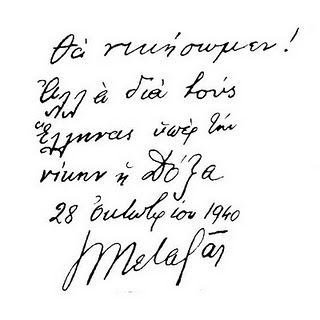 Θά νικήσωμεν!
Ἀλλὰ διὰ τούς
Ἕλληνας ὑπὲρ τήν
νίκην ἡ Δόξα
28 Ὀκτωβρίου 1940
ΙΜεταξᾶς